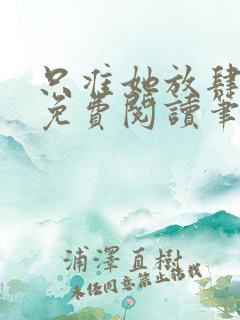 只准她放肆
免費閱讀筆
浦澤直樹
未經同意禁止轉載